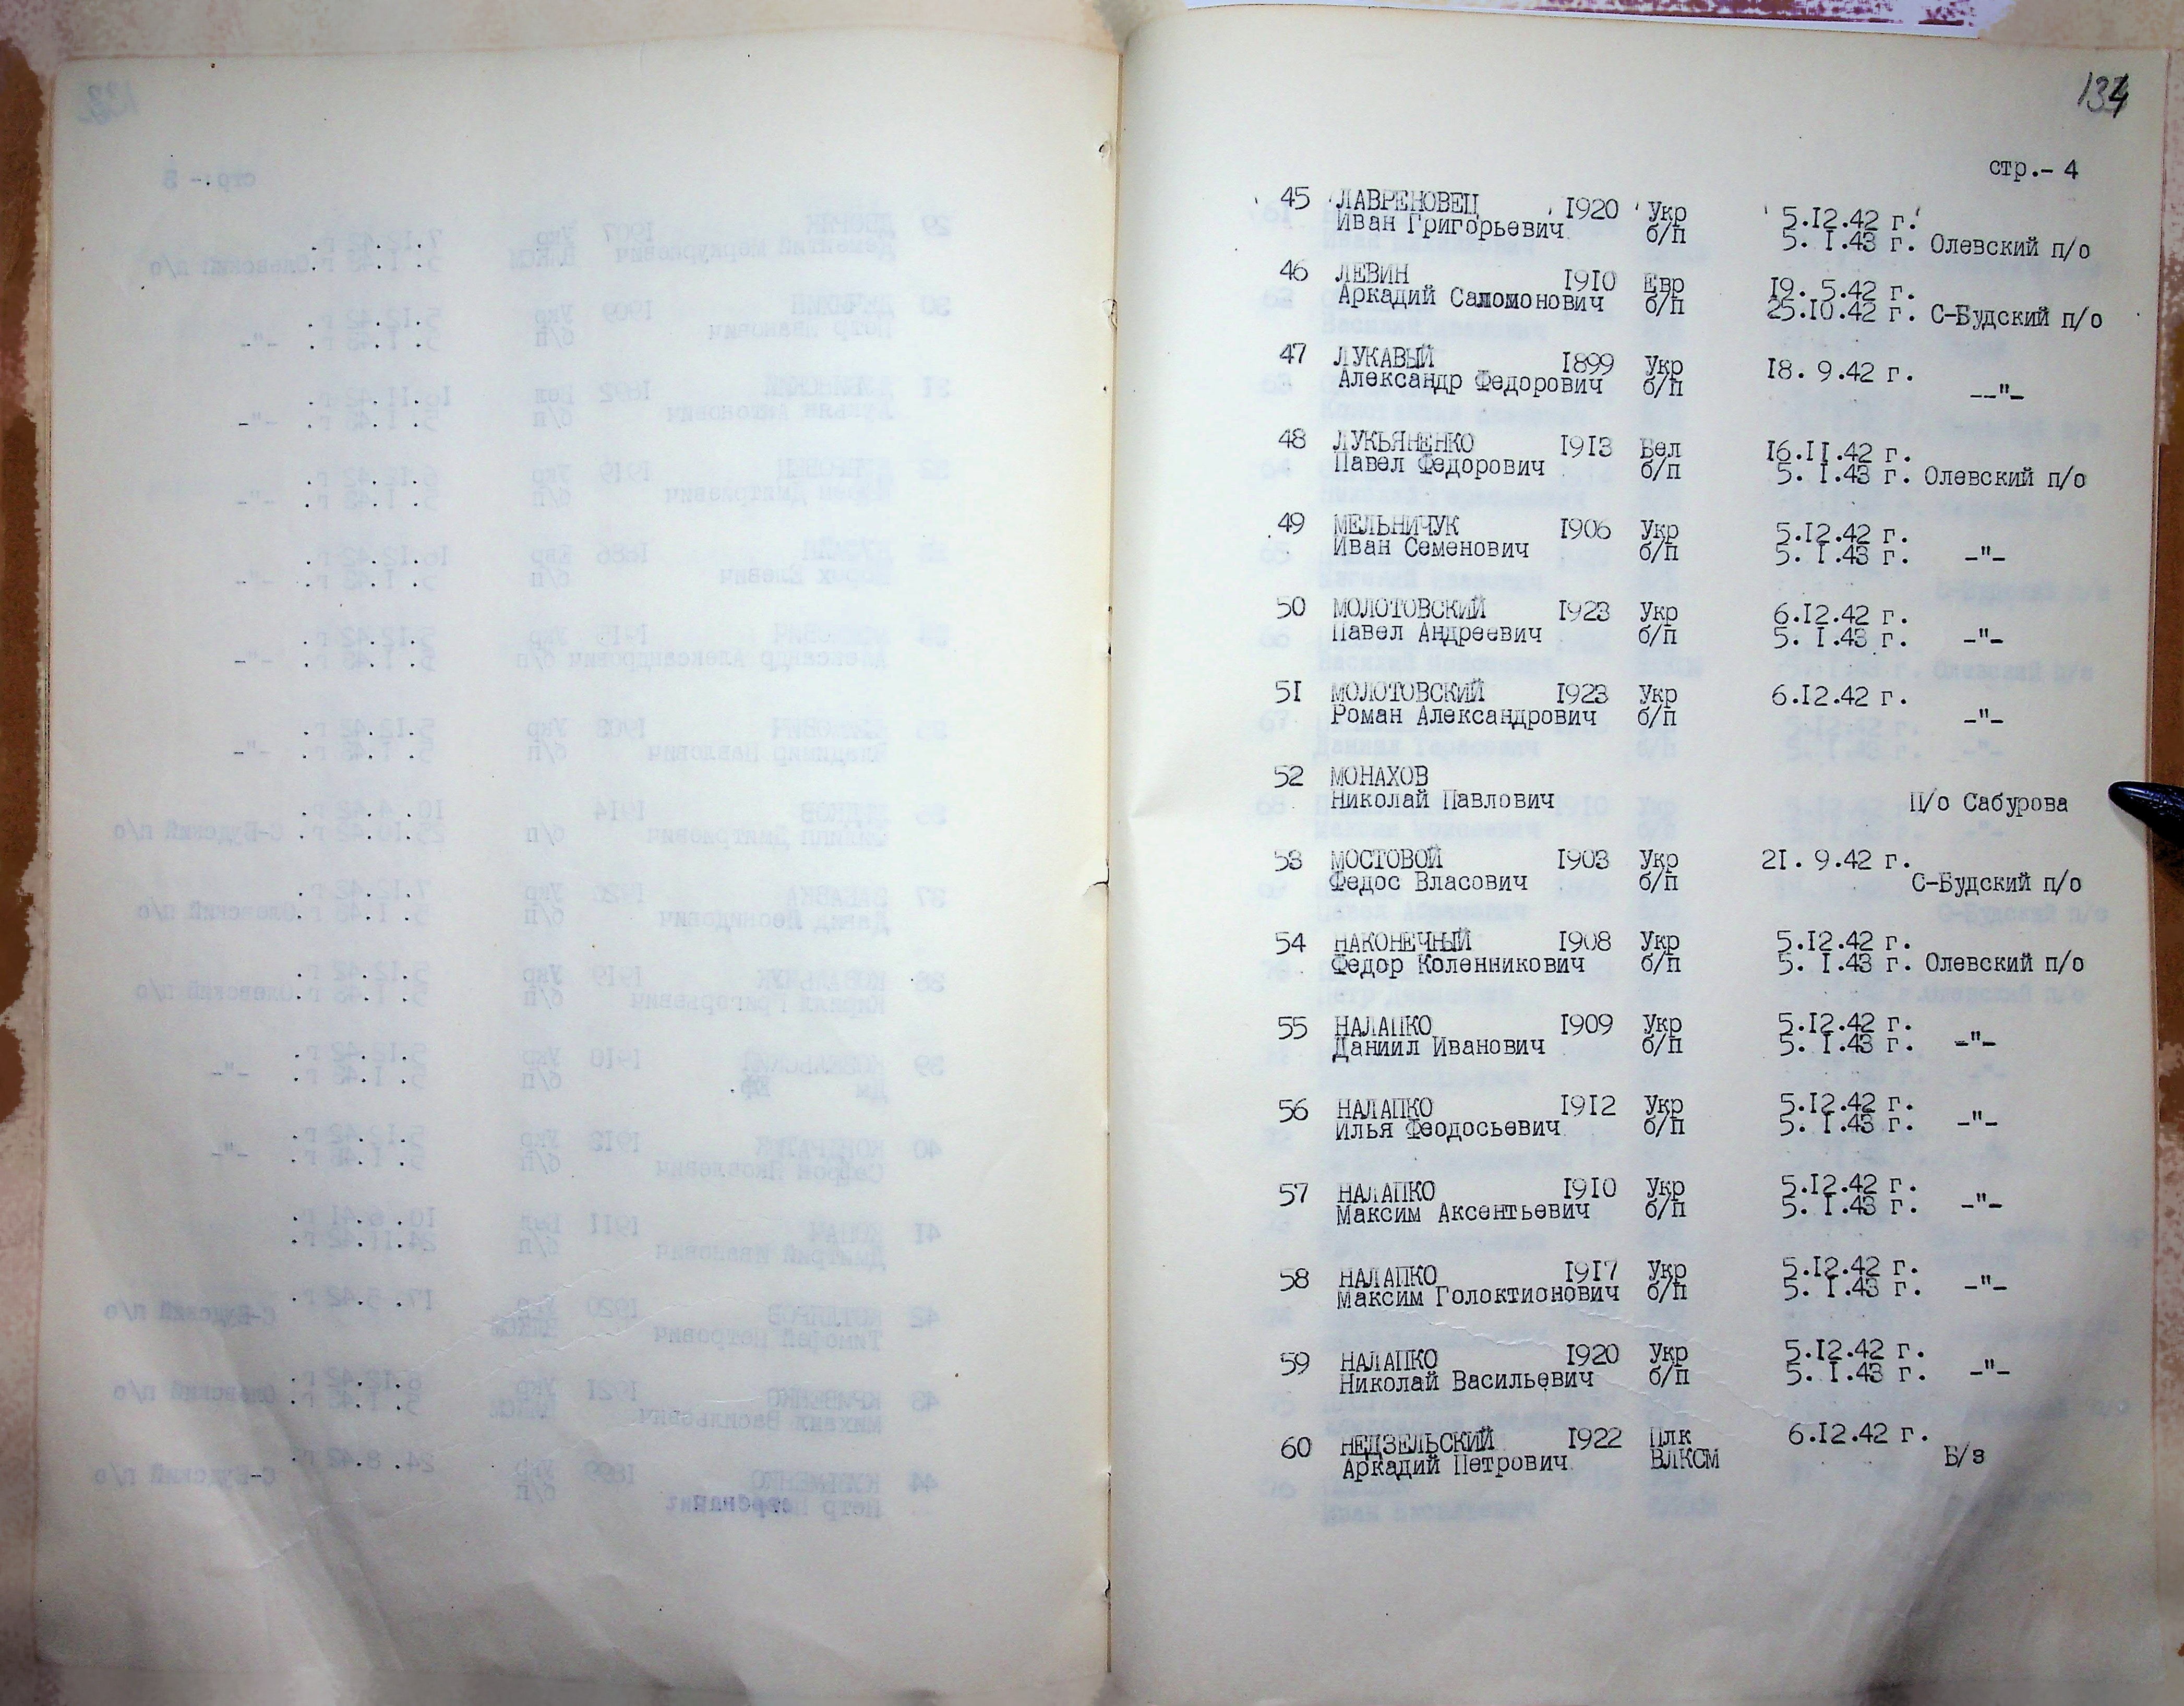 134
стр.- 4
45 ЛАВРЕНОВЕЦ 1920 Укр 5.12.42 г.
Иван Григорьевич б/п 5. 1.43 г. Олевский п/о
46 ЛЕВИН 1910 Евр 19. 5.42 г.
Аркадий Саломонович б/п 25.10.42 г. С-Будский п/о
47 ЛУКАВЫЙ 1899 Укр 18. 9.42 г.
Александр Федорович б/п --"-
48 ЛУКЬЯНЕНКО 1913 Бел 16.11.42 г.
Павел Федорович б/п 5. 1.43 г. Олевский п/о
49 МЕЛЬНИЧУК 1906 Укр 5.12.42 г.
Иван Семенович б/п 5. 1.43 г. -"-
50 МОЛОТОВСКИЙ 1923 Укр 6.12.42 г.
Павел Андреевич б/п 5. 1.43 г. -"-
51 МОЛОТОВСКИЙ 1923 Укр 6.12.42 г.
Роман Александрович б/п -"-
52 МОНАХОВ
Николай Павлович П/о Сабурова
53 МОСТОВОЙ 1903 Укр 21. 9.42 г.
Федос Власович б/п С-Будский п/о
54 НАКОНЕЧНЫЙ 1908 Укр 5.12.42 г.
Федор Коленникович б/п 5. 1.43 г. Олевский п/о
55 НАЛАПКО 1909 Укр 5.12.42 г.
Даниил Иванович б/п 5. 1.43 г. -"-
56 НАЛАПКО 1912 Укр 5.12.42 г.
Илья Феодосьевич б/п 5. 1.43 г. -"-
57 НАЛАПКО 1910 Укр 5.12.42 г.
Максим Аксентьевич б/п 5. 1.43 г. -"-
58 НАЛАПКО 1917 Укр 5.12.42 г.
Максим Голоктионович б/п 5. 1.43 г. -"-
59 НАЛАПКО 1920 Укр 5.12.42 г.
Николай Васильевич б/п 5. 1.43 г. -"-
60 НЕДЗЕЛЬСКИЙ 1922 Плк 6.12.42 г.
Аркадий Петрович ВЛКСМ Б/з